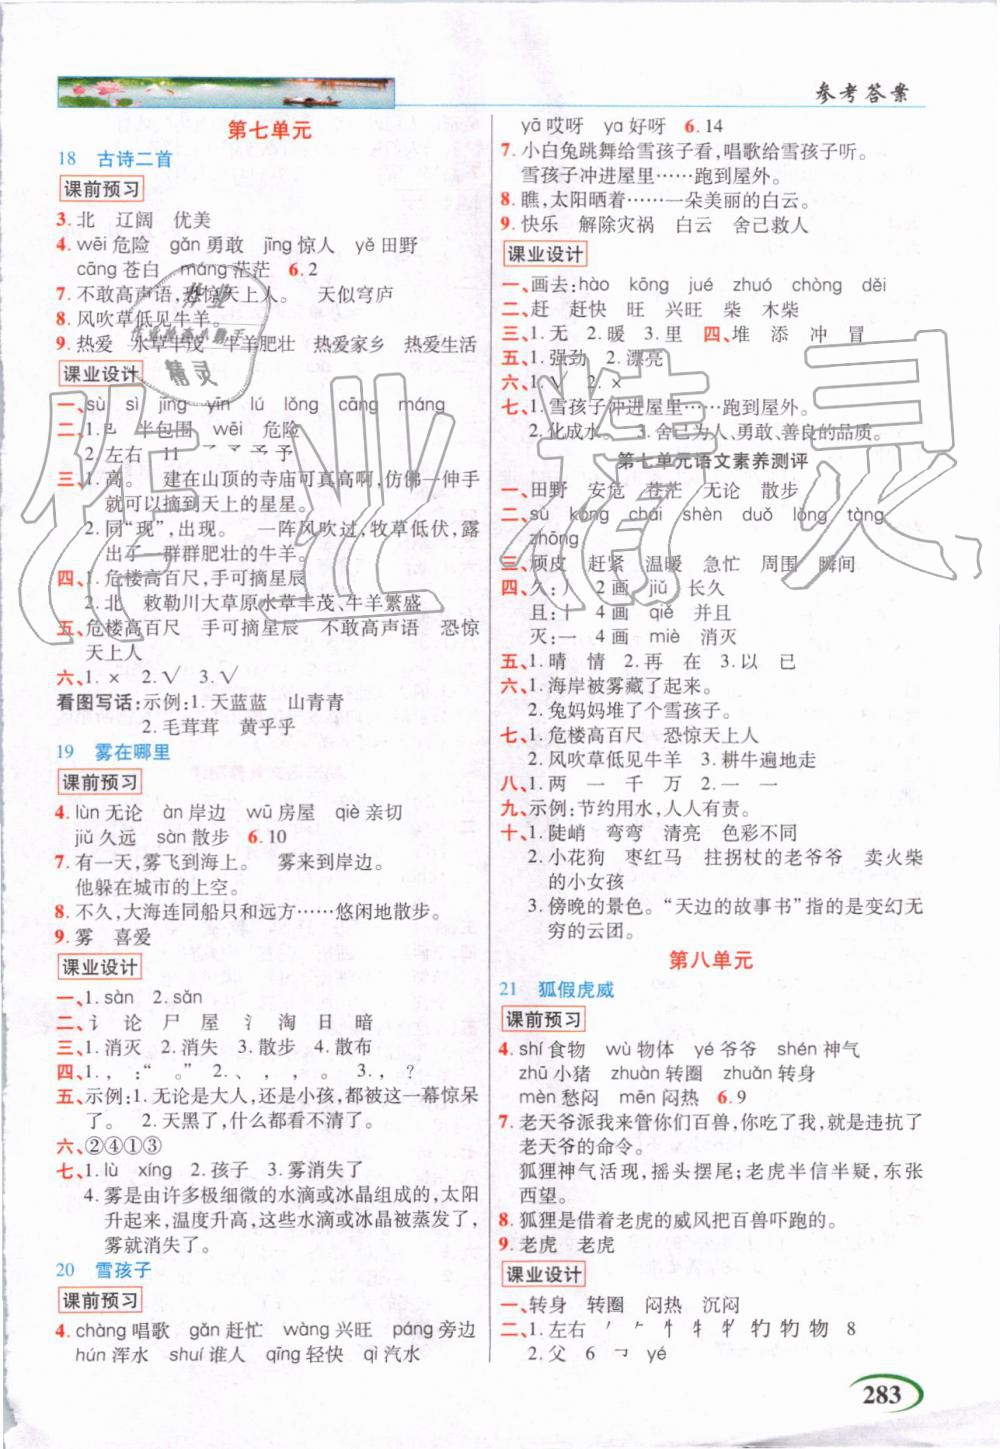 参考答案
第七单元
18 古诗二首
课前预习
3. 北 辽阔 优美
4. wēi 危险 gǎn 勇敢 jīng 惊人 yě 田野
cāng 苍白 máng 茫茫 6. 2
7. 不敢高声语,恐惊天上人。 天似穹庐
8. 风吹草低见牛羊。
9. 热爱 水草丰茂 牛羊肥壮 热爱家乡 热爱生活
课业设计
一、sù sì jīng yīn lú lǒng cāng máng
二、1. 㔾 半包围 wēi 危险
2. 左右 11 予
三、1. 高。 建在山顶的寺庙可真高啊,仿佛一伸手
就可以摘到天上的星星。
2. 同“现”,出现。 一阵风吹过,牧草低伏,露
出了一群群肥壮的牛羊。
四、1. 危楼高百尺,手可摘星辰
2. 北 敕勒川大草原水草丰茂、牛羊繁盛
五、危楼高百尺 手可摘星辰 不敢高声语 恐惊
天上人
六、1. × 2. √ 3. √
看图写话:示例:1. 天蓝蓝 山青青
2. 毛茸茸 黄乎乎
19 雾在哪里
课前预习
4. lùn 无论 àn 岸边 wū 房屋 qiè 亲切
jiǔ 久远 sàn 散步 6. 10
7. 有一天,雾飞到海上。 雾来到岸边。
他躲在城市的上空。
8. 不久,大海连同船只和远方……悠闲地散步。
9. 雾 喜爱
课业设计
一、1. sàn 2. sǎn
二、讠 论 尸 屋 氵 淘 日 暗
三、1. 消灭 2. 消失 3. 散步 4. 散布
四、1. , :“ 。” 2. 、 , , 。 3. , ?
五、示例:1. 无论是大人,还是小孩,都被这一幕惊呆
了。 2. 天黑了,什么都看不清了。
六、②④①③
七、1. lù xíng 2. 孩子 3. 雾消失了
4. 雾是由许多极细微的水滴或冰晶组成的,太阳
升起来,温度升高,这些水滴或冰晶被蒸发了,
雾就消失了。
20 雪孩子
课前预习
4. chàng 唱歌 gǎn 赶忙 wàng 兴旺 páng 旁边
hún 浑水 shuí 谁人 qīng 轻快 qì 汽水
yā 哎呀 ya 好呀 6. 14
7. 小白兔跳舞给雪孩子看,唱歌给雪孩子听。
雪孩子冲进屋里……跑到屋外。
8. 瞧,太阳晒着……一朵美丽的白云。
9. 快乐 解除灾祸 白云 舍己救人
课业设计
一、画去:hào kōng jué zhuó chòng děi
二、赶 赶快 旺 兴旺 柴 木柴
三、1. 无 2. 暖 3. 里 四、堆 添 冲 冒
五、1. 强劲 2. 漂亮
六、1. √ 2. ×
七、1. 雪孩子冲进屋里……跑到屋外。
2. 化成水。 3. 舍己为人、勇敢、善良的品质。
第七单元语文素养测评
一、田野 安危 苍茫 无论 散步
二、sù kǒng chái shèn duǒ lǒng tàng
zhōng
三、顽皮 赶紧 温暖 急忙 周围 瞬间
四、久:丿 2画 jiǔ 长久
且:一 4画 qiě 并且
灭:一 4画 miè 消灭
五、1. 晴 情 2. 再 在 3. 以 已
六、1. 海岸被雾藏了起来。
2. 兔妈妈堆了一个雪孩子。
七、1. 危楼高百尺 恐惊天上人
2. 风吹草低见牛羊 3. 耕牛遍地走
八、1. 两 一 千 万 2. 一 一
九、示例:节约用水,人人有责。
十、1. 陡峭 弯弯 清亮 色彩不同
2. 小花狗 枣红马 拄拐杖的老爷爷 卖火柴
的小女孩
3. 傍晚的景色。“天边的故事书”指的是变幻无
穷的云团。
第八单元
21 狐假虎威
课前预习
4. shí 食物 wù 物体 yé 爷爷 shén 神气
zhū 小猪 zhuàn 转圈 zhuǎn 转身
mèn 愁闷 mēn 闷热 6. 9
7. 老天爷派我来管你们百兽,你吃了我,就是违抗
老天爷的命令。
狐狸神气活现,摇头摆尾;老虎半信半疑,东张
西望。
8. 狐狸是借着老虎的威风把百兽吓跑的。
9. 老虎 老虎
课业设计
一、转身 转圈 闷热 沉闷
二、1. 左右 物 物 8
2. 父 6 乛 yé
283